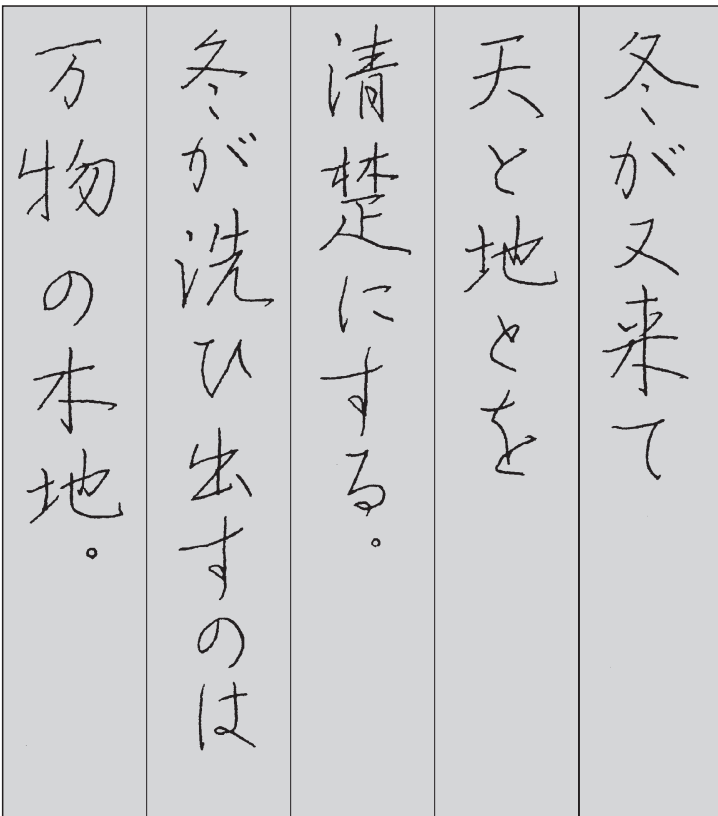 冬が又来て
天と地とを
清楚にする。
冬が洗ひ出すのは
万物の木地。